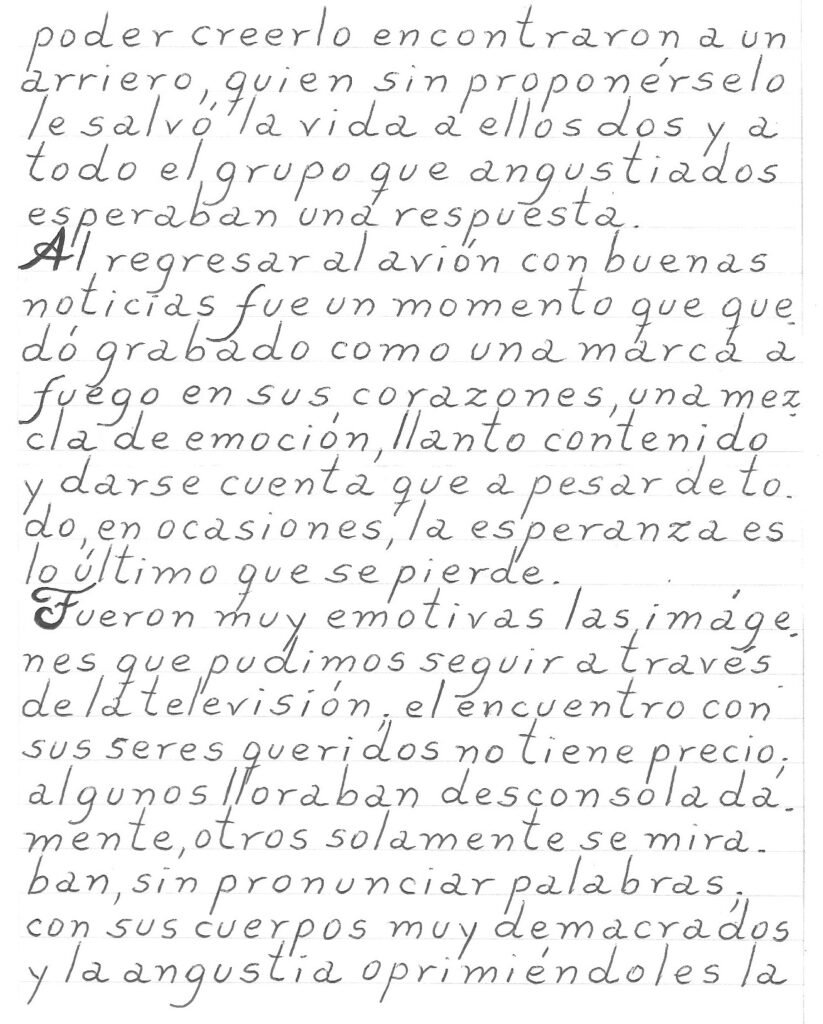 poder creerlo encontraron a un
arriero, quien sin proponérselo
le salvó la vida a ellos dos y a
todo el grupo que angustiados
esperaban una respuesta.
Al regresar al avión con buenas
noticias fue un momento que que-
dó grabado como una marca a
fuego en sus corazones, una mez-
cla de emoción, llanto contenido
y darse cuenta que a pesar de to-
do, en ocasiones, la esperanza es
lo último que se pierde.
Fueron muy emotivas las imáge-
nes que pudimos seguir a través
de la televisión; el encuentro con
sus seres queridos no tiene precio;
algunos lloraban desconsolada-
mente, otros solamente se mira-
ban, sin pronunciar palabras;
con sus cuerpos muy demacrados
y la angustia oprimiéndoles la